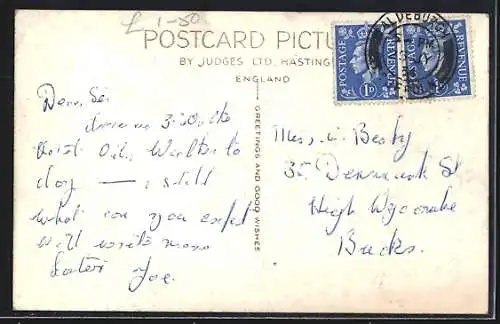 £ 1-50
POSTCARD PICTU
BY JUDGES LTD, HASTING
ENGLAND
GREETINGS AND GOOD WISHES
POSTAGE REVENUE
1D
POSTAGE REVENUE
ALDEBURGH
Dear Sir
3
to
day — still
what can you expect
will write more
Later Joe.
Beaby
35 Denmark St
High Wycombe
Bucks.